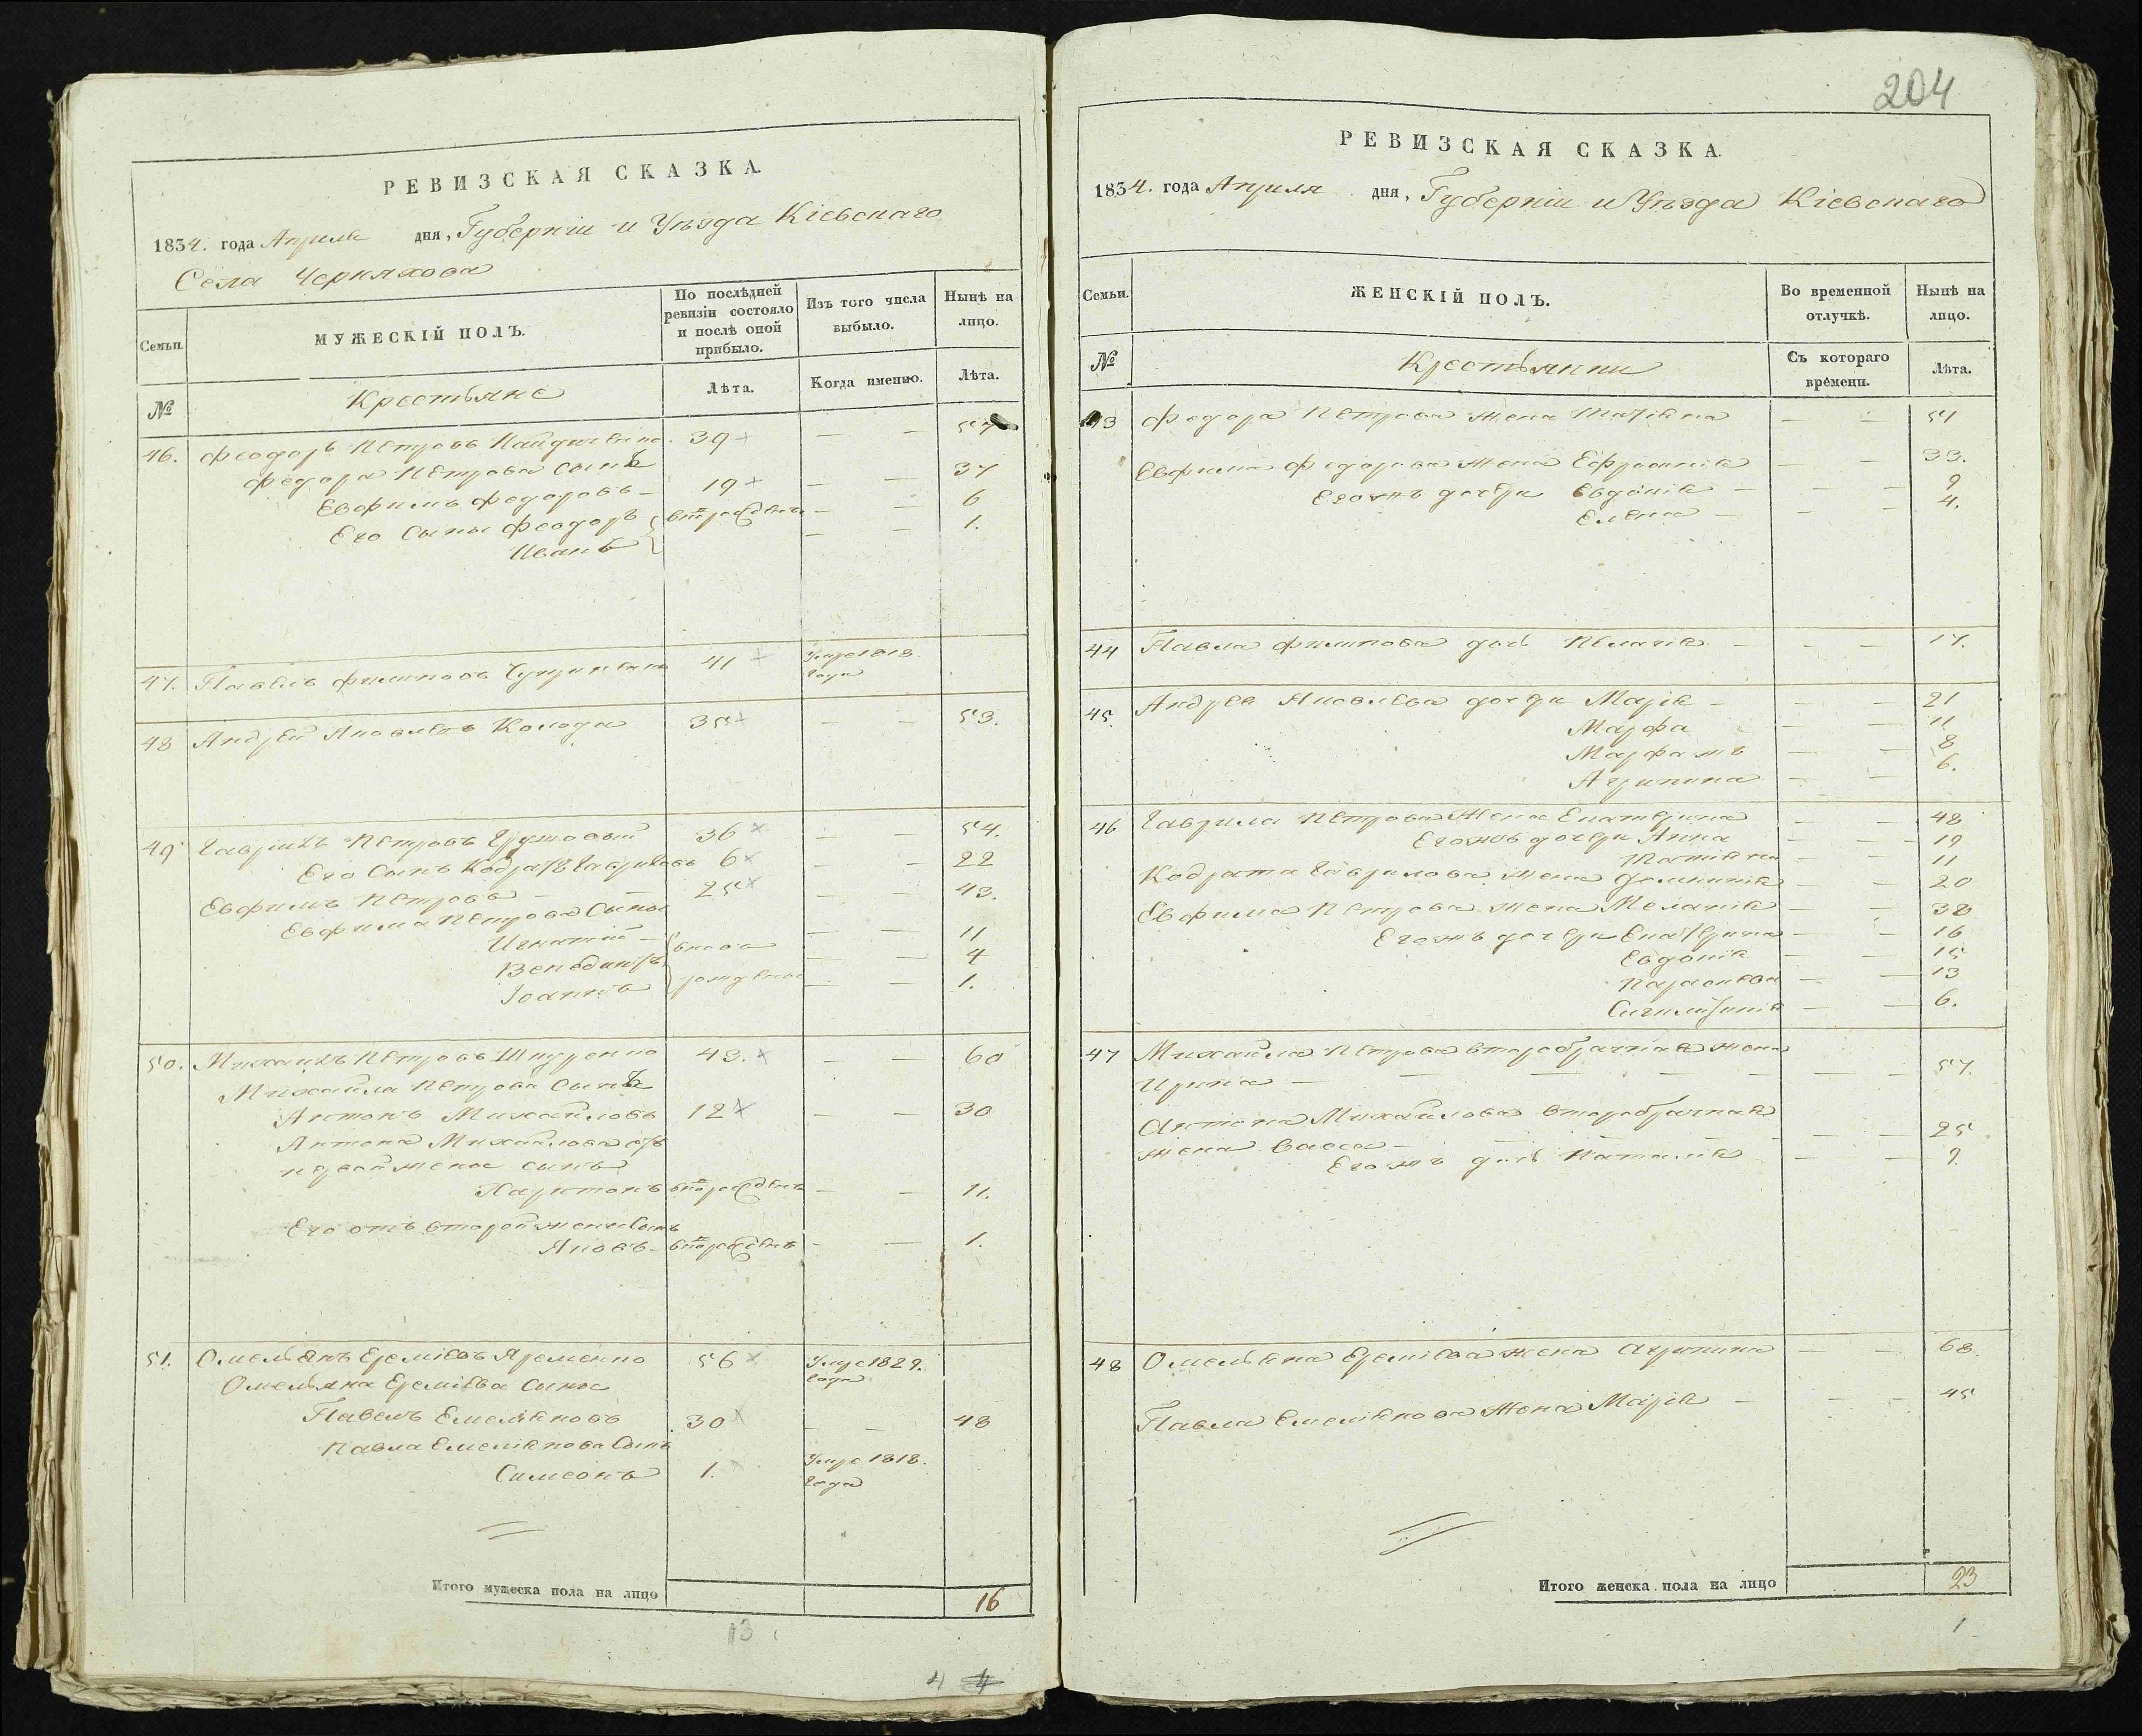 РЕВИЗСКАЯ СКАЗКА.
1834. года Апреля дня, Губерніи и Уѣзда Кіевскаго
Села Черняхова
Семьи. МУЖЕСКІЙ ПОЛЪ. По послѣдней ревизіи состояло и послѣ оной прибыло. Изъ того числа выбыло. Нынѣ на лицо.
№ Крестьяне Лѣта. Когда именно. Лѣта.
46. Феодоръ Петровъ 39 — — 57
Федора Петрова сынъ
Евфимъ Федоровъ — 19 — — 37
Его сыны Феодоръ — — 6
Иванъ — — 1.
47. Павелъ Филиповъ 41 Умре 1813. года
48 Андрей Яковлевъ Колода 35 — — 53.
49 Гавріилъ Петровъ 36 — — 54.
Его сынъ Кодратъ Гавриловъ 6 — — 22
Евфимъ Петровъ — 25 — — 43.
Евфима Петрова сыны
Игнатій — вновь — — 11
Венедиктъ — — 4
Іоаннъ рожденые — — 1.
50. Михаилъ Петровъ Шкуренко 43. — — 60
Михайла Петрова сынъ
Антонъ Михайловъ 12 — — 30
Антона Михайлова отъ
первой жены сынъ
Харитонъ — — 11.
Его отъ второй жены сынъ
Яковъ — — — 1.
51. Омельянъ Ереміевъ Яременко 56 Умре 1829. года
Омельяна Ереміева сыны
Павелъ Емеліяновъ 30 — — 48
Павла Емеліянова сынъ
Симеонъ 1. Умре 1818. года
Итого мужеска пола на лицо 16
13
4
204
РЕВИЗСКАЯ СКАЗКА.
1834. года Апреля дня, Губерніи и Уѣзда Кіевскаго
Семьи. ЖЕНСКІЙ ПОЛЪ. Во временной отлучкѣ. Нынѣ на лицо.
№ Крестьянки Съ котораго времени. Лѣта.
43 Федора Петрова жена Татіяна — — 51
Евфима Федорова жена Ефросинія — — 33.
Егожъ дочери Евдокія — — — 9
Елена — — — 4.
44 Павла Филипова дочь Пелагія — — — 17.
45. Андрея Яковлева дочери Марія — — — 21
Марфа — — 11
Марфа жъ — — 8
Агрипина — — 6.
46 Гаврила Петрова жена Екатерина — — 48
Егожъ дочери Анна — — 19
Татіяна — — 11
Кодрата Гаврилова жена Домникія — — 20
Евфима Петрова жена Меланія — — 38
Егожъ дочери Екатерина — — 16
Евдокія — — 15
Параскева — — 13
— — 6.
47 Михайла Петрова второбрачная жена
Ирина — — — — — — — 57.
Антона Михайлова второбрачная
жена Васса — — — — — — 25
Егожъ дочь Наталія — — 9.
48 Омельяна Ереміева жена Агрипина — — 68
Павла Емеліянова жена Марія — — — 45
Итого женска пола на лицо 23
1